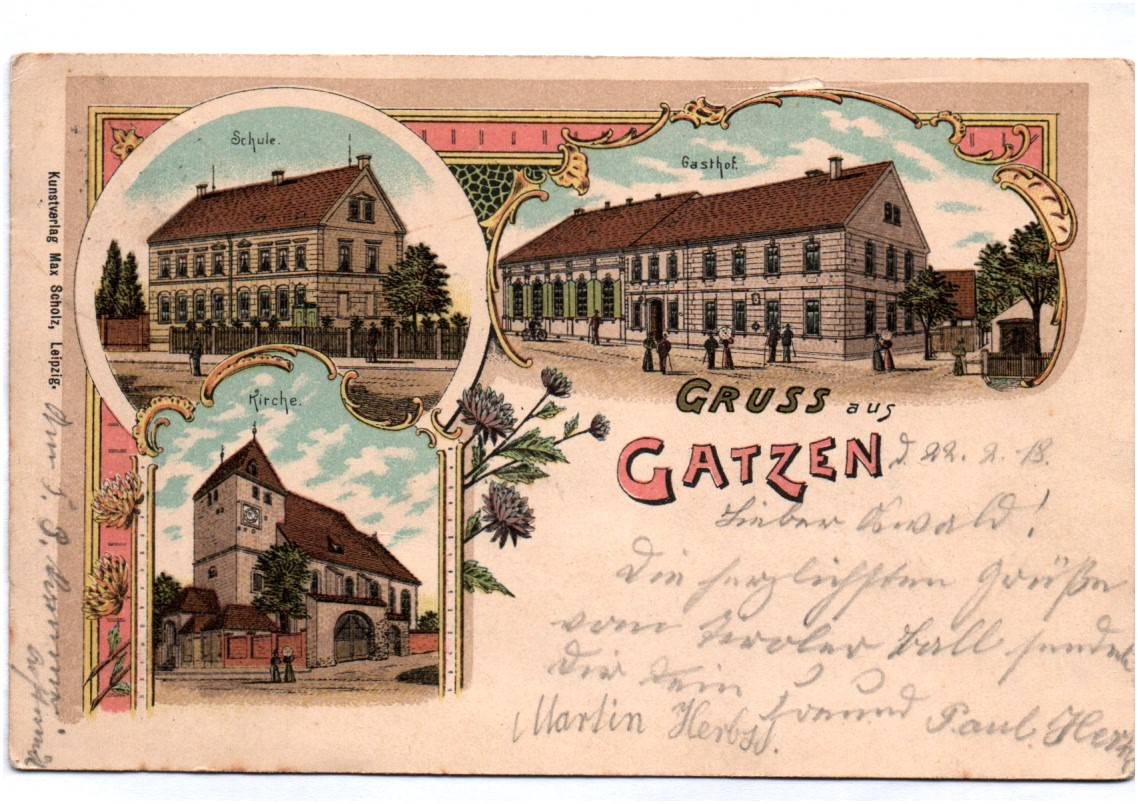 Schule.
Gasthof.
Kirche.
GRUSS aus
GATZEN
Kunstverlag Max Scholz, Leipzig.
d. 22. 2. 18.
Lieber Oswald!
Die herzlichsten Grüße
vom Tiroler Ball sendet
Dir Dein Freund Paul
Martin Herbst.